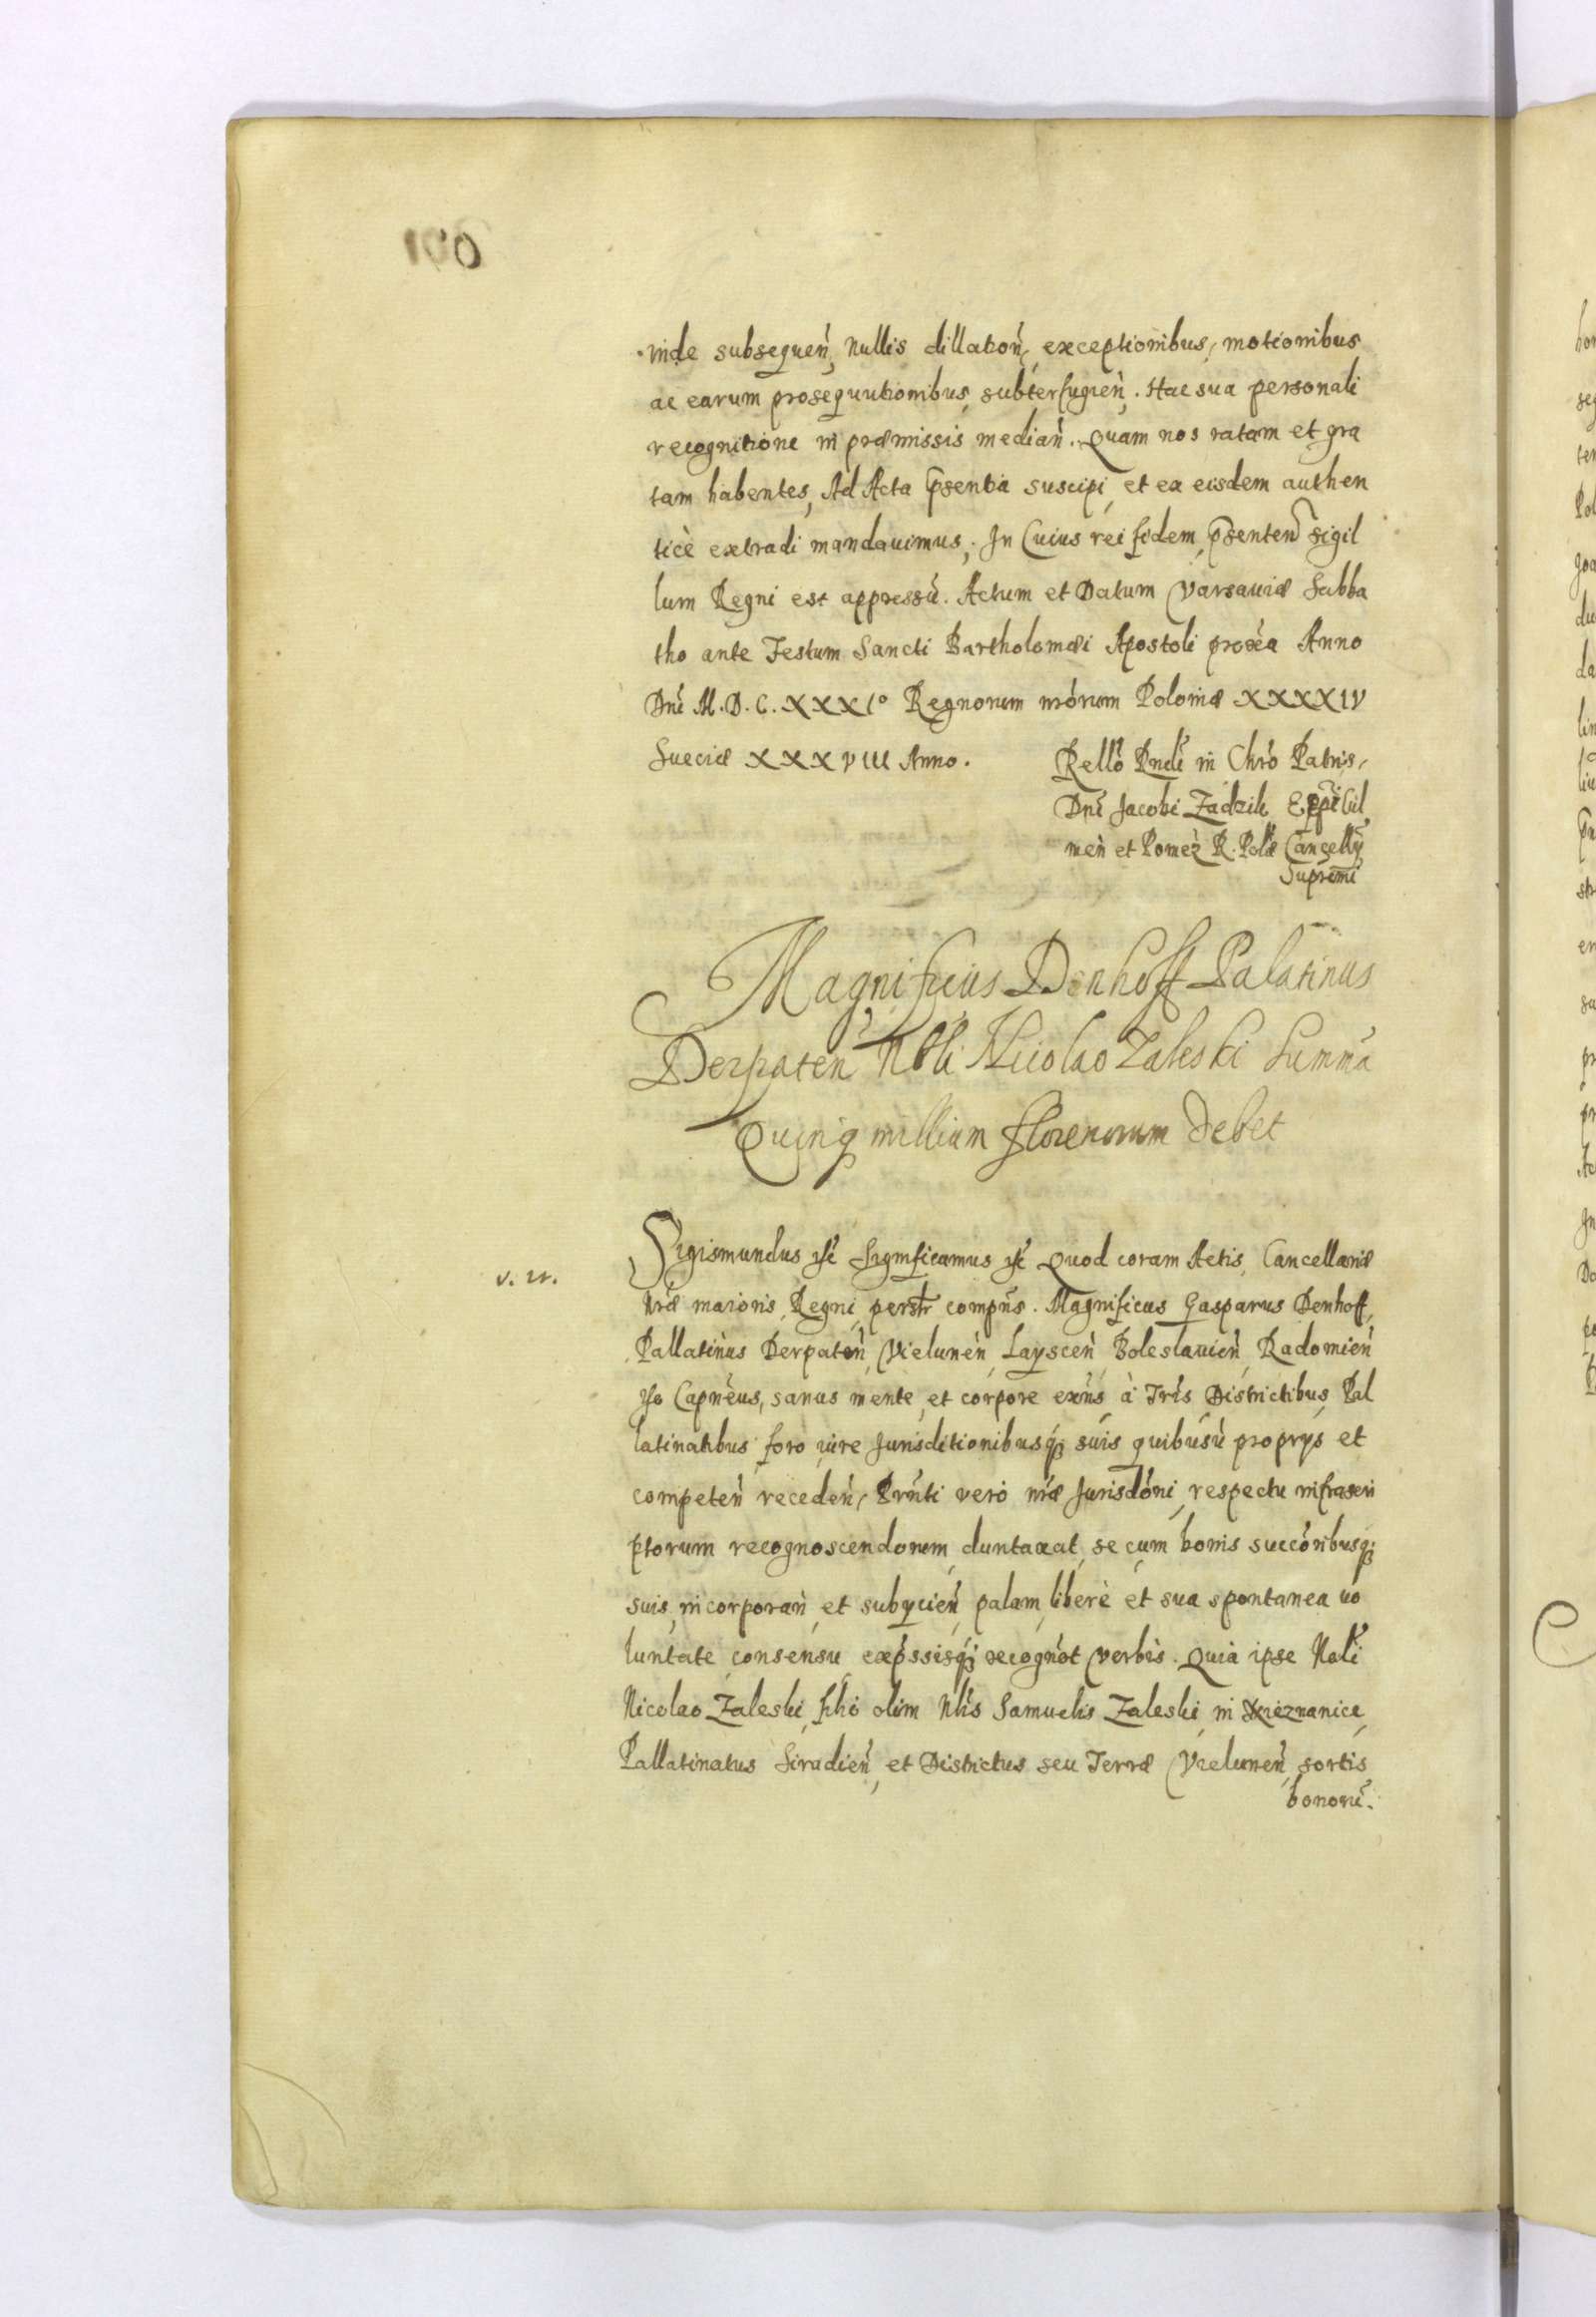 inde subsequeń, Nullis dillatioń, exceptionibus, motionibus
ac earum prosequutionibus, subterfugień. Hac sua personali
recognitione in præmissis mediań. Quam nos ratam et gra
tam habentes, Ad Acta p̃sentia suscipi, et ex eisdem authen
ticè extradi mandavimus, In Cuius rei fidem, p̃senteḿ sigil
lum Regni est appressũ. Actum et Datum Varsaviæ Sabba
tho ante Festum Sancti Bartholomæi Apostoli proxĩa Anno
Dnĩ M.D.C.XXXIº Regnorum nrórum Poloniæ XXXXIV
Sueciæ XXXVIII Anno.
Relló Rndĩ in Chró Patris,
Dnĩ Jacobi Zadzik Epp̃i Cul
meń et Pomez̀ R. Polæ Cancellỹ
Supremi
Magnificus Denhoff Palatinus
Derpateń Nbli Nicolao Zaleski Summã
Quinq millium florenorum debet
Sigismundus etc̃ Significamus etc̃ Quod coram Actis, Cancellariæ
nrǽ maioris, Regni, persłr compns̃. Magnificus Gasparus Denhoff,
Pallatinus Derpateń, Vieluneń, Laysceń, Boleslavień, Radomień
Capnẽus, sanus mente, et corpore exn̄s, à Trís Districtibus, Pal
latinatibus foro iure Jurisditionibusq; suis quibusũ proprys et
competeń recedeń, Prn̄ti vero nrǽ Jurisdóni, respectu infrascri
ptorum recognoscendorum duntaxat, se cum bonis succóribusq;
suis, incorporań, et subycień, palam, liberè et sua spontanea vo
luntate, consensu exp̃ssisq; recognót verbis. Quia ipse Nolĩ
Nicolao Zaleski, filio olim Nlis Samuelis Zaleski, in
Pallatinatus Siradień, et Districtus seu Terræ Vieluneń, sortis
bonorũ.
v. rr.